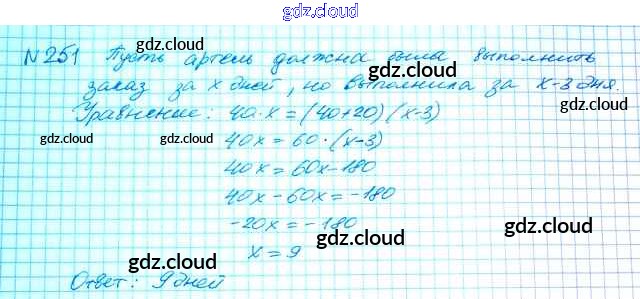 gdz.cloud
№251 Пусть артель должна была выполнить
gdz.cloud gdz.cloud
заказ за x дней, но выполнила за x-3 дня.
gdz.cloud gdz.cloud
Уравнение: 40·x=(40+20)(x-3)
gdz.cloud gdz.cloud gdz.cloud
40x=60·(x-3)
40x=60x-180
gdz.cloud
40x-60x=-180
-20x=-180
gdz.cloud
x=9
gdz.cloud gdz.cloud
Ответ: 9 дней